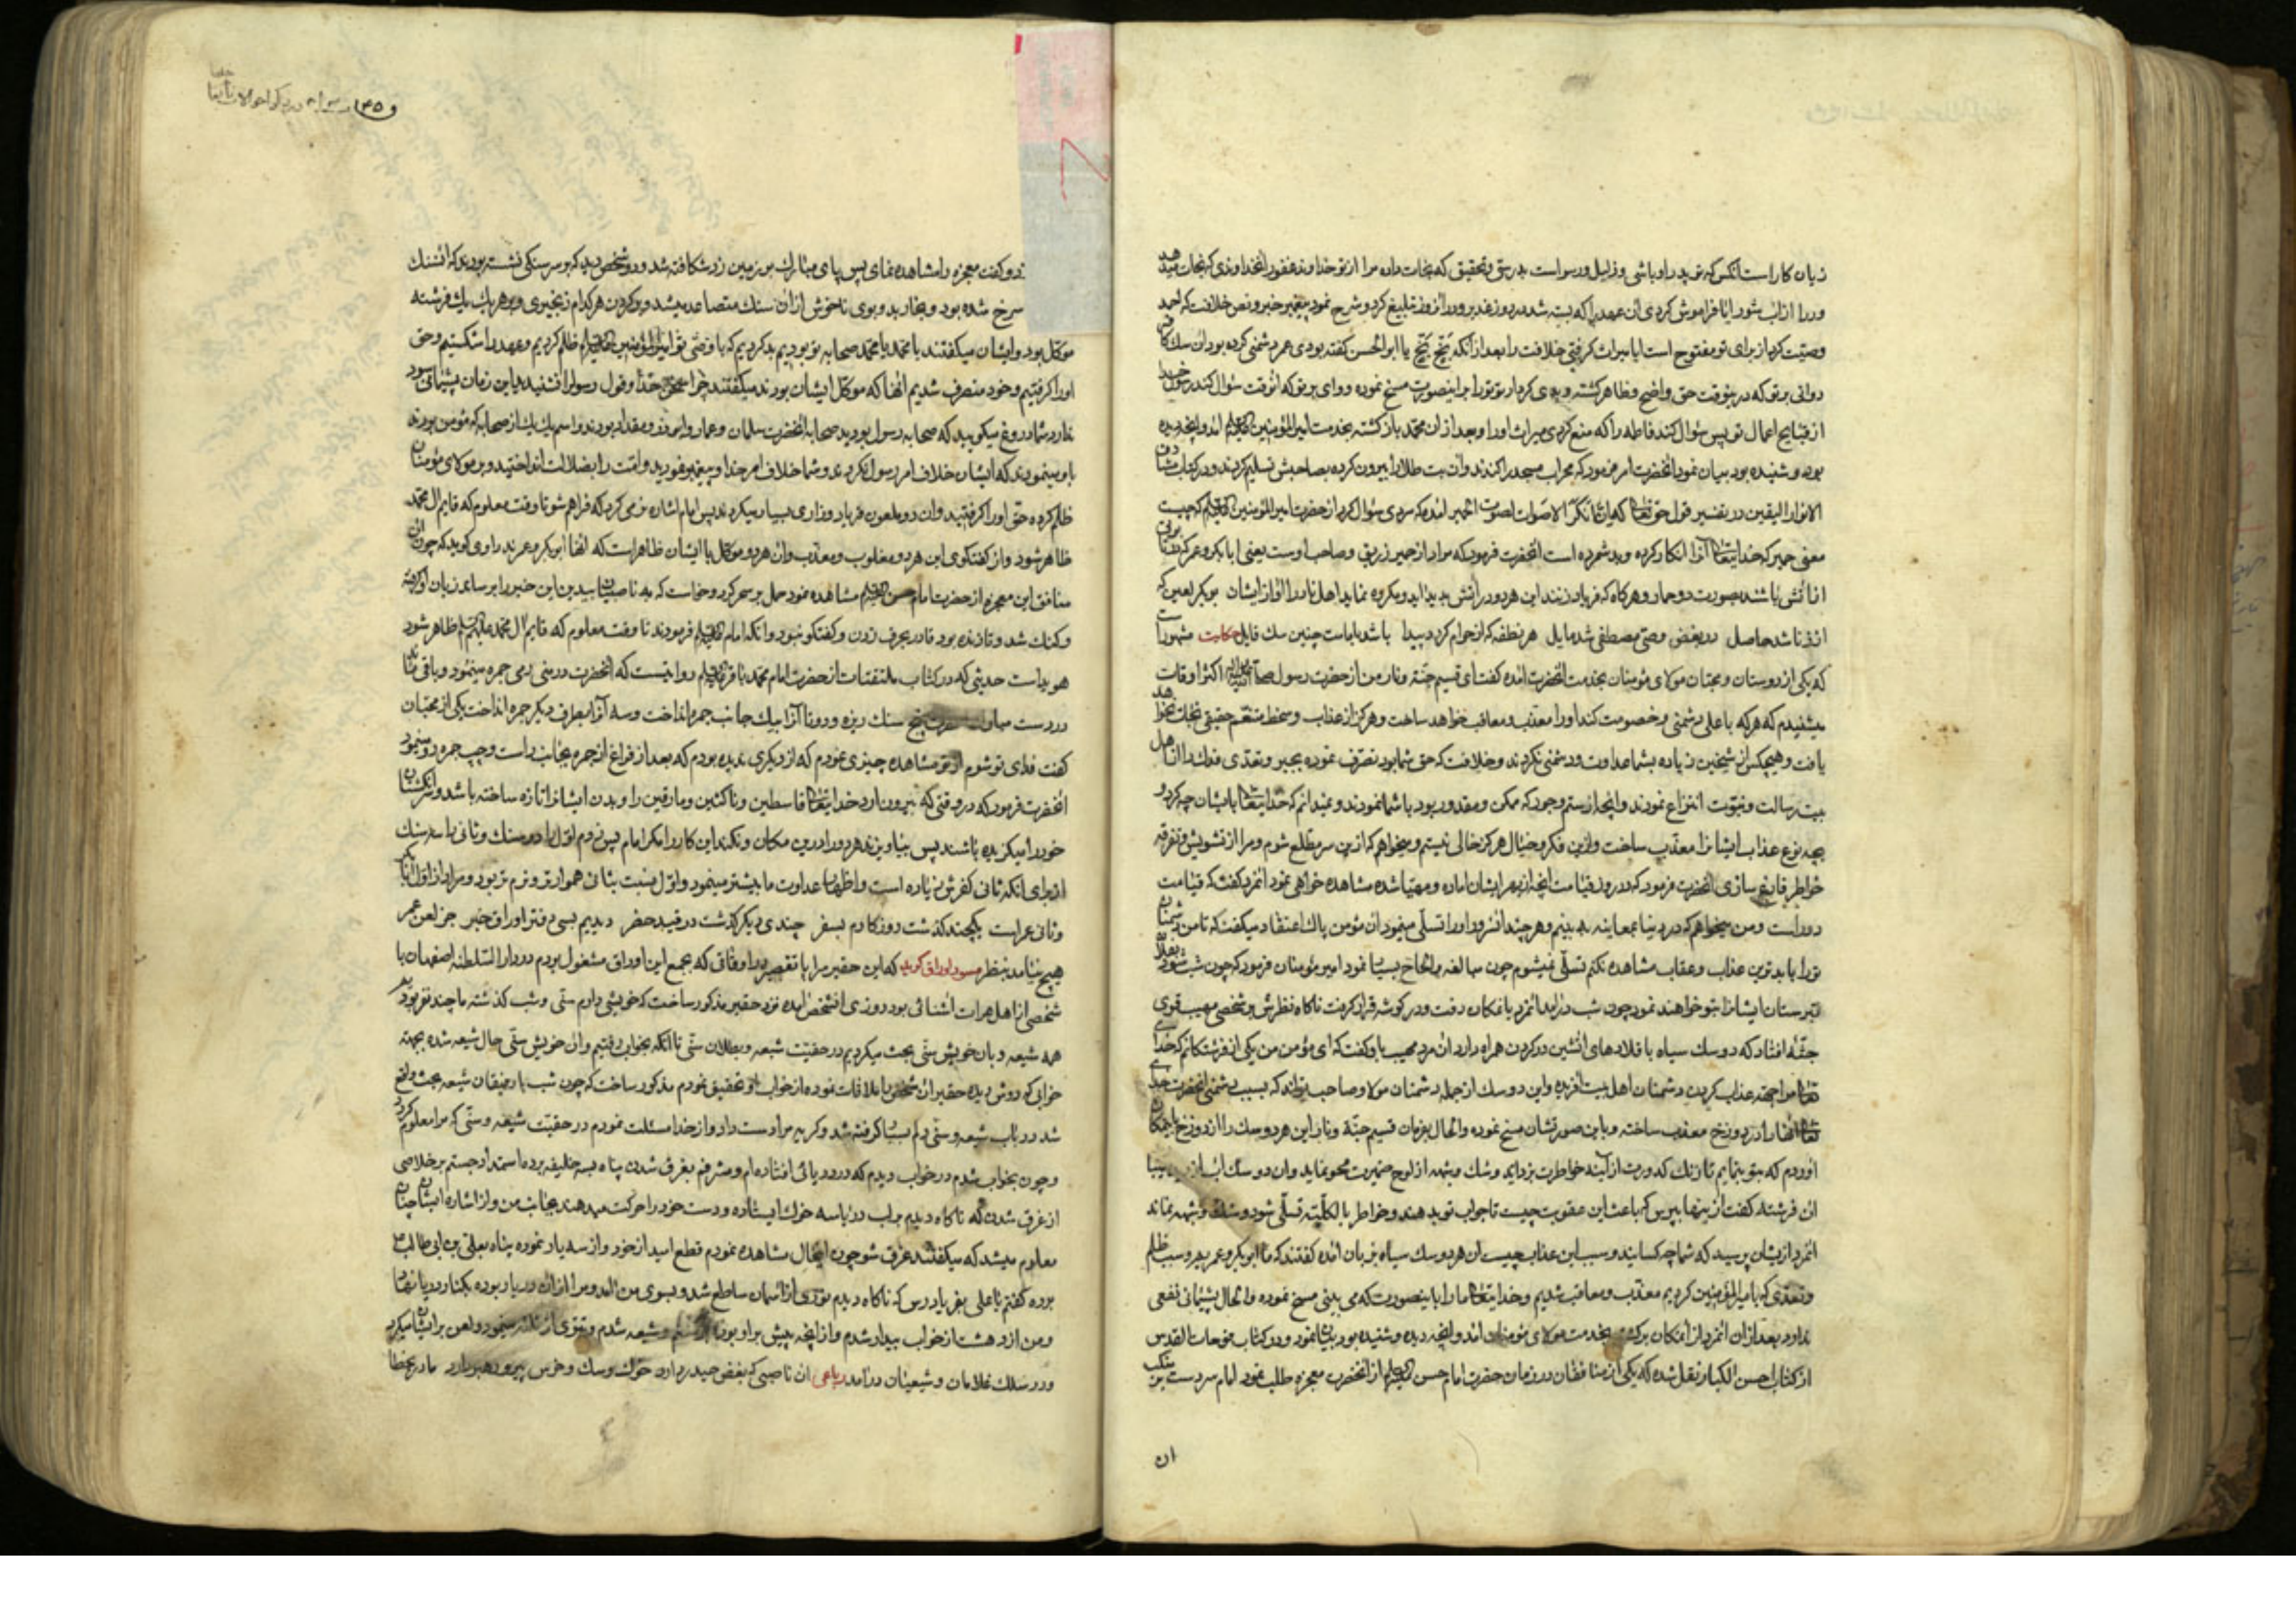 زیان کار است انکس که تو پدر او باشی و ذلیل و رسواست بدرستی و تحقیق که نجات داده مرا از تو خداوند غفور انخداوندی که نجات میدهد
ورا از اب شور ایا فراموش کردی ان عهد را که بسته شد در روز غدیر و در انروز تبلیغ کرد و شرح نمود پیغمبر خبر و نص خلافت که احمد
وصیت کرد از برای تو مفتوح است ایا میراث گرفتی خلافت را بعد از انکه بخ بخ یا ابوالحسن گفته بودی عمر دشمنی کرده بود ان سک
وای بر تو که در وقت حق واضح و ظاهر کشته و بدی کردار تو تو را براینصورت مسخ نموده و وای بر تو که انوقت سؤال کند رسول خدا
از قبایح اعمال تو پس سؤال کند فاطمه را که منع کردی میراث او را و بعد از ان محمد باز کشته بخدمت امیر المؤمنین امد و انچه دیده
بود و شنیده بود بیان نمود انحضرت امر فرمود که محراب مسجد را کندند و ان بت طلا را بیرون کرده بصاحبش تسلیم کردند و در کتاب مشارق
الانوار الیقین در تفسیر قول حق تعالی که ان انکر الاصوات لصوت الحمیر امده که مردی سؤال کرد از حضرت امیر المؤمنین که چیست
معنی حمیر که خدایتعالی انرا انکار کرده و بد شمرده است انحضرت فرمود که مراد از حمیر زریق و صاحب اوست یعنی ابابکر و عمر که در
از اتش باشند بصورت دو حمار و هرکاه که فریاد زنند این هر دو در اتش بد بد اید و مکروه نماید اهل نار را اواز ایشان بوبکر لعین که
از زنا شد حاصل در بغض وصی مصطفی شد مایل هر نطفه که از حرام کردد پیدا باشد بامامت چنین سک قایل حکایت مشهور است
که یکی از دوستان و محبان مولای مؤمنان بخدمت انحضرت امده کفت ای قسیم جنة و نار من از حضرت رسول اکثر اوقات
میشنیدم که هرکه با علی دشمنی و خصومت کند او را معذب و معاقب خواهد ساخت و هرکز از عذاب و سخط منتقم حقیقی نجات نخواهد
یافت و هیچکس از شیخین زیاده بشما عداوت و دشمنی نکردند و خلافت که حق شما بود تصرف نموده بجبر و تعدی فدک را از اهل
بیت رسالت و نبوت انتزاع نمودند و انچه از ستم و جور که ممکن و مقدور بود باشما نمودند و نمیدانم که خدایتعالی بایشان چه کرد و
بچه نوع عذاب ایشانرا معذب ساخت و ازین فکر و خیال هرکز خالی نیستم و میخواهم که ازین سر مطلع شوم و مرا از تشویش و تفرقه
خواطر فارغ سازی انحضرت فرمود که در روز قیامت انچه از بهر ایشان اماده و مهیا شده مشاهده خواهی نمود انمرد کفت که قیامت
دور است و من میخواهم که در دنیا بمعاینه به بینم و هر چند انسرور او را تسلی مینمود ان مؤمن پاک اعتقاد میکفت که تا من دشمنان
تو را بابدترین عذاب و عقاب مشاهده نکنم تسلی نمیشوم چون مبالغه و الحاح بسیار نمود امیر مؤمنان فرمود که چون شب شود
قبرستان ایشانرا بتو خواهند نمود چون شب درامد انمرد بانمکان رفت و در کوشه قرار کرفت ناکاه نظرش بر شخصی مهیب قوی
جثه افتاد که دو سک سیاه با قلادهای اتشین در کردن همراه دارد ان مرد مهیب باو کفت که ای مؤمن من یکی از فرشتکانم که خدای
تعالی مرا بجهة عذاب کردن دشمنان اهل بیت افریده و این دو سک از جمله دشمنان مولا و صاحب تواند که بسبب دشمنی انحضرت خدای
تعالی انها را در دوزخ معذب ساخته و باین صورتشان مسخ نموده و الحال بفرمان قسیم جنة و نار این هر دو سک را از دوزخ باینمکان
اوردم که بتو بنمایم تا زنک کدورت از اینه خواطرت بزداید و شک و شبهه از لوح ضمیرت محو نماید و ان دو سک
ان فرشته کفت از اینها بپرس که باعث این عقوبت چیست تا جواب تو بدهند و خواطر بالکلیه تسلی شود و شک و شبهه نماند
انمرد ازیشان پرسید که شما چه کسانید و سبب این عذاب چیست ان هر دو سک سیاه بزبان امده کفتند که ما ابوبکر و عمریم و سبب ظلم
و تعدی که با امیر المؤمنین کردیم معذب و معاقب شدیم و خدایتعالی ما را باینصورت که می بینی مسخ نموده و الحال پشیمانی نفعی
ندارد بعد از ان انمرد از انمکان برکشته بخدمت مولای مؤمنان امد و انچه دیده و شنیده بود بیان نمود و در کتاب فتوحات القدس
از کتاب حسن الکبار نقل شده که یکی از منافقان در زمان حضرت امام حسن از انحضرت معجزه طلب نمود امام سر دست
ان
زد و کفت معجزه را مشاهده نمای پس پای مبارک بر زمین زد شکافته شد و دو شخص دید که بر سر سنکی نشسته بودند که انسنک
سرخ شده بود و بخار بد و بوی ناخوش از ان سنک متصاعد میشد و بر کردن هر کدام زنجیری و بر هر یک یک فرشته
موکل بود و ایشان میکفتند یا محمد یا محمد صحابه تو بودیم بد کردیم که با وصی تو امیر المؤمنین ظلم کردیم و عهد را شکستیم و حق
او را کرفتیم و خود متصرف شدیم انها که موکل ایشان بودند میکفتند چرا سخن خدا و قول رسول را نشنیدید این زمان پشیمانی سود
ندارد شما دروغ میکویید که صحابه رسول بودید صحابه انحضرت سلمان و عمار و ابوذر و مقداد بودند و اسم یک یک از صحابه که مؤمن بودند
باو مینمودند که ایشان خلاف امر رسول نکردند و شما خلاف امر خدا و پیغمبر نمودید و امت را بضلالت انداختید و بر مولای مؤمنان
ظلم کرده حق او را کرفتید و ان دو ملعون فریاد و زاری بسیار میکردند پس امام اشاره نرمی کرد که فراهم شو تا وقت معلوم که قایم ال محمد
ظاهر شود و از کفتکوی این هر دو مغلوب و معذب و ان هر دو موکل با ایشان ظاهر است که انها ابوبکر و عمرند راوی کوید که چون ان
منافق این معجزه از حضرت امام حسن مشاهده نمود حمل بر سحر کرد و خواست که به ناصبیان بیدین این خبر را برساند زبان او کرفته
و کنک شد و تا زنده بود قادر بحرف زدن و کفتکو نبود و انکه امام فرمودند تا وقت معلوم که قایم ال محمد علیهم السلام ظاهر شود
هویداست حدیثی که در کتاب ملتقتات از حضرت امام محمد باقر روایتست که انحضرت در منی رمی جمره مینمود و باقی ماند
در دست مبارک پنج سنک ریزه و دو تا انرا بیک جانب جمره انداخت و سه انرا بطرف دیکر جمره انداخت یکی از محبان
کفت فدای تو شوم از تو مشاهده چیزی نمودم که از دیکری ندیده بودم که بعد از فراغ از جمره بجانب راست و چپ جمره رمی نمود
انحضرت فرمود که در وقتی که بیرون ارد خدایتعالی قاسطین و ناکثین و مارقین را و بدن ایشانرا تازه ساخته باشد و انکشتان
خود را میکزیده باشند پس بیاویزند هر دو را درین مکان و نکند این کار را مکر امام پس زدم اول را دو سنک و ثانی را سه سنک
از برای انکه ثانی کفرش زیاده است و اظهار عداوت ما بیشتر مینمود و اول نسبت بثانی هموارتر و نرم تر بود و مراد از اول ابابکر
و ثانی عمر است یکچند کذشت روزکارم بسفر چندی دیکر کذشت در قید حضر دیدیم بسی دفتر اوراق خبر جز لعن عمر
هیچ نیامد بنظر مسود اوراق کوید که این حقیر را با تقصیر در اوقاتی که بجمع این اوراق مشغول بودم در دار السلطنه اصفهان با
شخصی از اهل هرات اشنائی بود روزی انشخص امده نزد حقیر مذکور ساخت که خویشی دارم سنی و شب کذشته ما چند نفر بودیم
همه شیعه و بان خویش سنی بحث میکردیم در حقیت شیعه و بطلان سنی تا انکه بخواب رفتیم و ان خویش سنی حال شیعه شده بجهته
خوابی که دوش دیده حقیر ان شخص را ملاقات نموده از خواب او تحقیق نمودم مذکور ساخت که چون شب با رفیقان شیعه بحث واقع
شد در باب شیعه و سنی دلم بسیار کرفته شد و کریه مرا دست داد و از خدا مسئلت نمودم در حقیت شیعه و سنی که مرا معلوم کردد
و چون بخواب شدم در خواب دیدم که در دریائی افتاده ام و مشرفم بغرق شدن پناه بسه خلیفه برده استمداد جستم بر خلاصی
از غرق شدن که ناکاه دیدم بر لب دریا سه خوک ایستاده و دست خود را حرکت میدهند بجانب من و از اشاره ایشان چنان
معلوم میشد که میکفتند غرق شو چون اینحال مشاهده نمودم قطع امید از خود و از سه یار نموده پناه بعلی بن ابی طالب
برده کفتم یا علی بفریاد رس که ناکاه دیدم نوری از اسمان ساطع شد و بسوی من امد و مرا از ان دریا ربوده بکنار دریا نهاد
و من از دهشت از خواب بیدار شدم و از انچه پیش بر او بودم و شیعه شدم و تبری از ثلاثه مینمود و لعن بر ایشان میکرد
و در سلک غلامان و شیعیان درامد رباعی ان ناصبی که بغض حیدر دارد خوک و سک و خرس پیر و رهبر دارد مادر بخطا